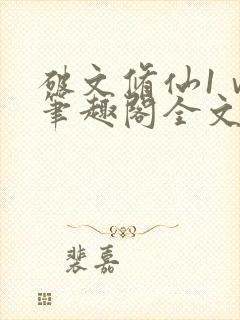 破文修仙1 v
笔趣阁全文
裴嘉